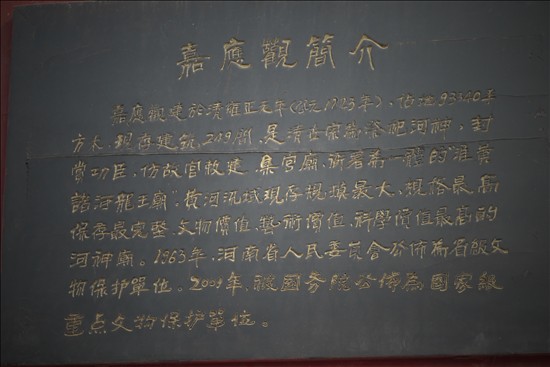 嘉應觀簡介
嘉應觀建於清雍正元年(公元1723年)，佔地93340平
方米，現存建筑249間，是清世宗為祭祀河神，封
賞功臣，仿故宮敕建集宮、廟、衙署為一體的"淮黃
諸河龍王廟"，黄河流域現存規模最大、規格最高
保存最完整、文物價值、藝術價值、科學價值最高的
河神廟。1963年，河南省人民委员會公佈為省級文
物保护單位。2001年，被國务院公佈為國家級
重点文物保护單位。